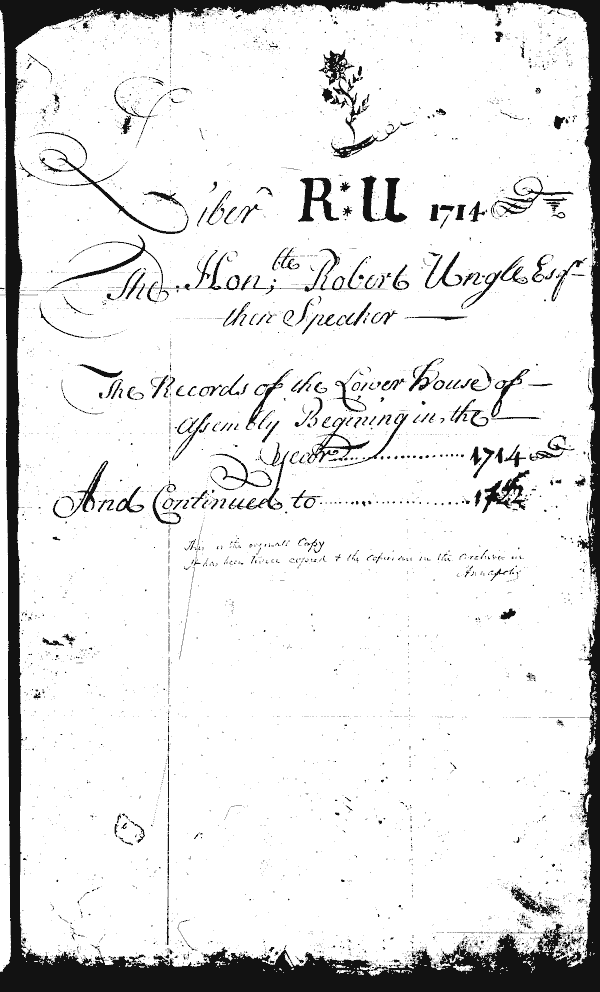 Liber R:U 1714
The Hon;ble Robert Ungle Esqr
then Speaker
The Records of the Lower House of
Assembly Begining in the
Year 1714
And Continued to
This is the originall Copy
It has been twice copied & the copies are in the archives in
Annapolis